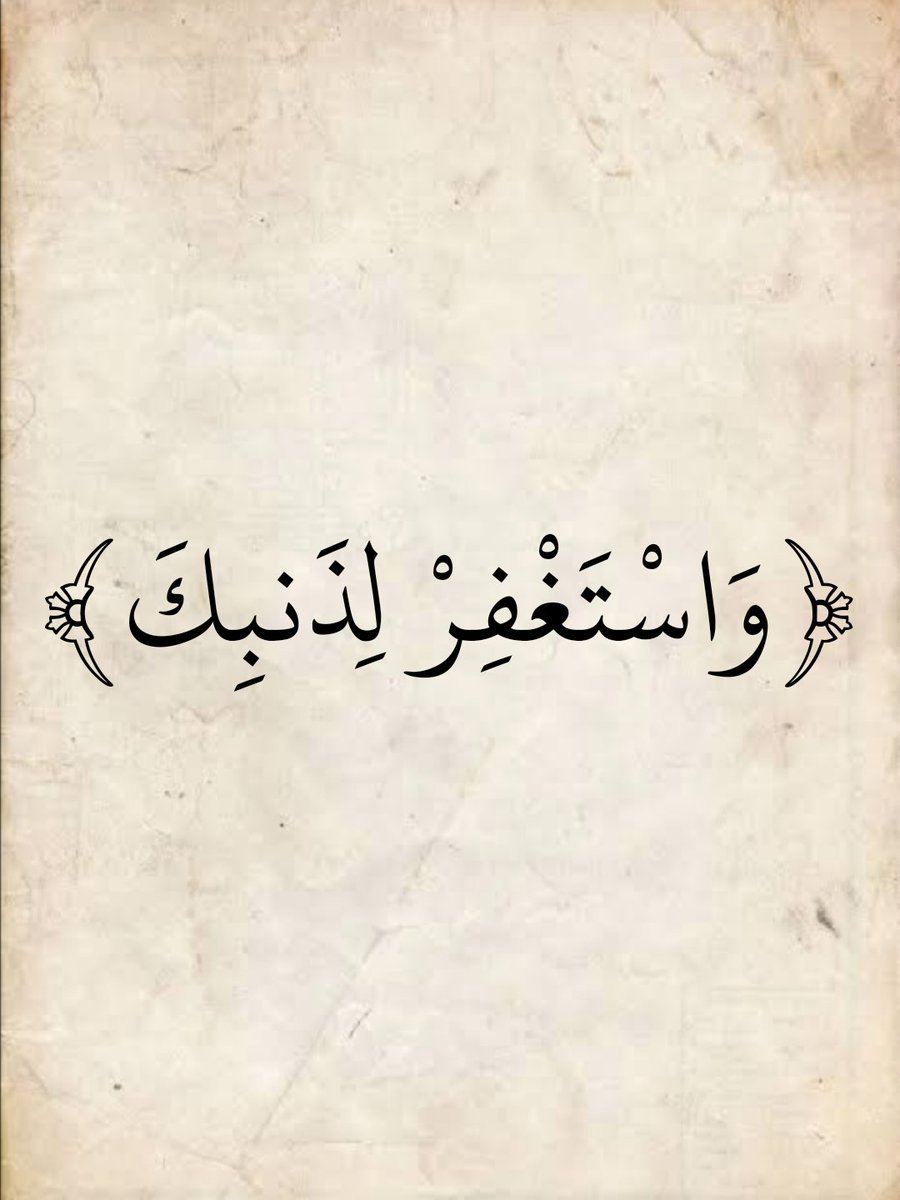 ﴿وَاسْتَغْفِرْ لِذَنبِكَ﴾